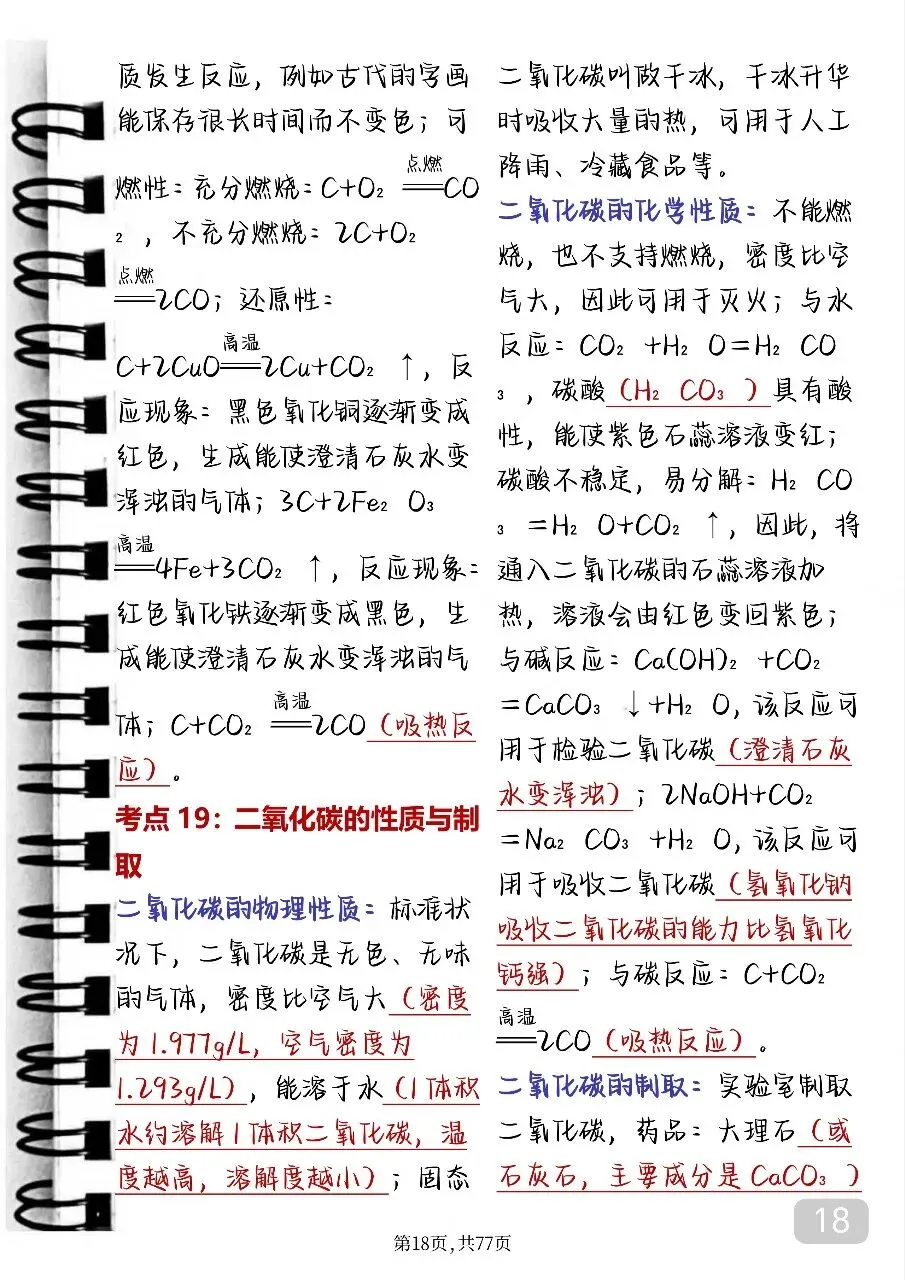 质发生反应，例如古代的字画
能保存很长时间而不变色；可
点燃
燃性：充分燃烧：C+O₂ ══CO
₂ ，不充分燃烧：2C+O₂
点燃
══2CO；还原性：
高温
C+2CuO══2Cu+CO₂ ↑，反
应现象：黑色氧化铜逐渐变成
红色，生成能使澄清石灰水变
浑浊的气体；3C+2Fe₂ O₃
高温
══4Fe+3CO₂ ↑，反应现象：
红色氧化铁逐渐变成黑色，生
成能使澄清石灰水变浑浊的气
高温
体；C+CO₂ ══2CO（吸热反
应）。
考点 19：二氧化碳的性质与制
取
二氧化碳的物理性质：标准状
况下，二氧化碳是无色、无味
的气体，密度比空气大（密度
为 1.977g/L，空气密度为
1.293g/L），能溶于水（1 体积
水约溶解 1 体积二氧化碳，温
度越高，溶解度越小）；固态
二氧化碳叫做干冰，干冰升华
时吸收大量的热，可用于人工
降雨、冷藏食品等。
二氧化碳的化学性质：不能燃
烧，也不支持燃烧，密度比空
气大，因此可用于灭火；与水
反应：CO₂ +H₂ O＝H₂ CO
₃ ，碳酸（H₂ CO₃ ）具有酸
性，能使紫色石蕊溶液变红；
碳酸不稳定，易分解：H₂ CO
₃ ＝H₂ O+CO₂ ↑，因此，将
通入二氧化碳的石蕊溶液加
热，溶液会由红色变回紫色；
与碱反应：Ca(OH)₂ +CO₂
＝CaCO₃ ↓+H₂ O，该反应可
用于检验二氧化碳（澄清石灰
水变浑浊）；2NaOH+CO₂
＝Na₂ CO₃ +H₂ O，该反应可
用于吸收二氧化碳（氢氧化钠
吸收二氧化碳的能力比氢氧化
钙强）；与碳反应：C+CO₂
高温
══2CO（吸热反应）。
二氧化碳的制取：实验室制取
二氧化碳，药品：大理石（或
石灰石，主要成分是 CaCO₃ ）
18
第18页，共77页